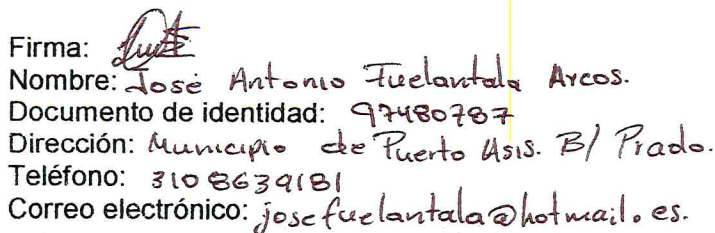 Firma:
Nombre: José Antonio Fuelantala Arcos.
Documento de identidad: 97480787
Dirección: Municipio de Puerto Asis. B/ Prado.
Teléfono: 310 8639181
Correo electrónico: josefuelantala@hotmail.es.